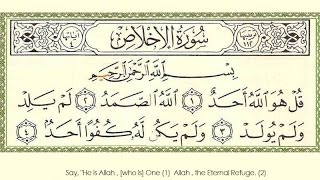 ١١٢ سُورَةُ الْإِخْلَاصِ آياتها ٤
بِسْمِ اللَّهِ الرَّحْمَٰنِ الرَّحِيمِ
قُلْ هُوَ اللَّهُ أَحَدٌ ١ اللَّهُ الصَّمَدُ ٢ لَمْ يَلِدْ
وَلَمْ يُولَدْ ٣ وَلَمْ يَكُن لَّهُ كُفُوًا أَحَدٌ ٤
Say, "He is Allah , [who is] One (1) Allah , the Eternal Refuge. (2)